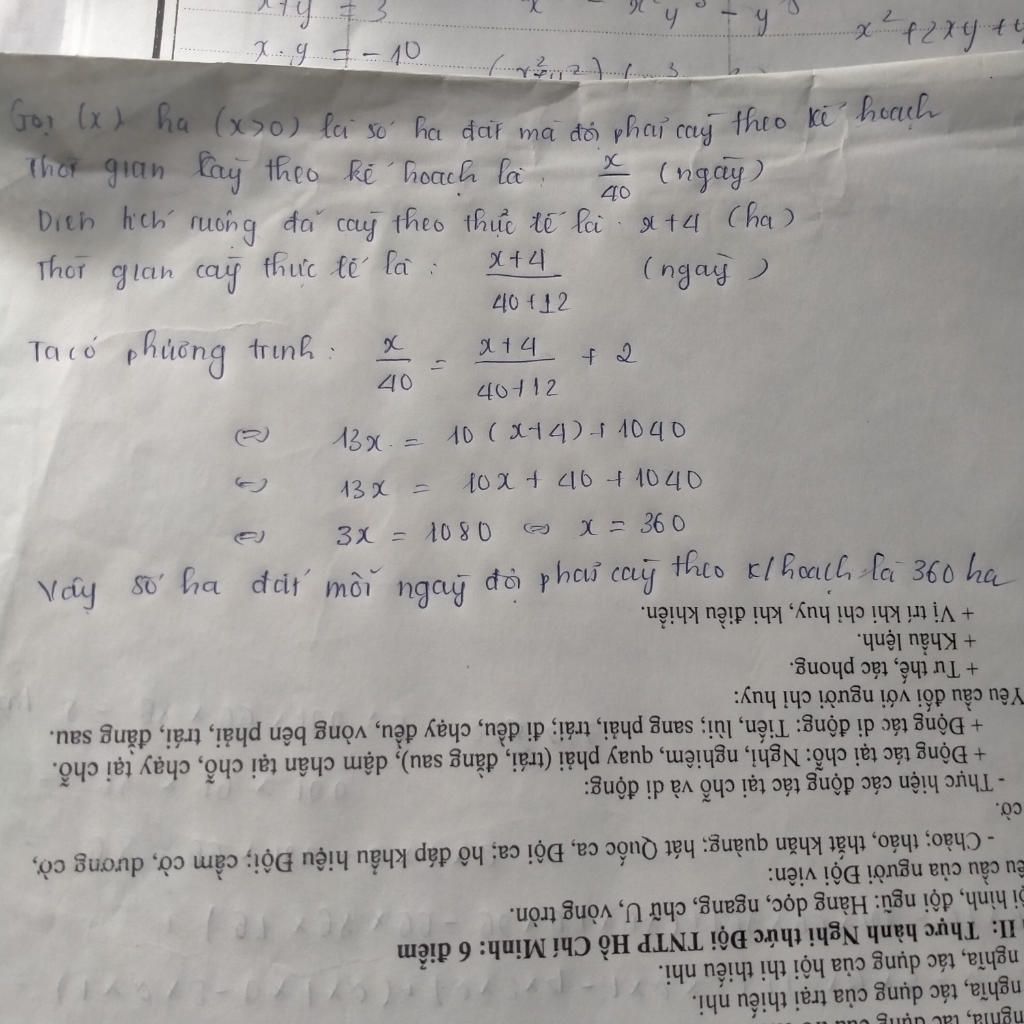 x+y = 3
x² + 2xy +
x.y = -10
Gọi (x) ha (x>0) là số ha đất mà đội phải cày theo kế hoạch
Thời gian cày theo kế hoạch là x/40 (ngày)
Diện tích ruộng đã cày theo thực tế là x+4 (ha)
Thời gian cày thực tế là : x+4/40+12 (ngày)
Ta có phương trình : x/40 = x+4/40+12 + 2
⇔ 13x = 10(x+4) + 1040
⇔ 13x = 10x + 40 + 1040
⇔ 3x = 1080 ⇔ x = 360
Vậy số ha đất mỗi ngày đội phải cày theo k/hoạch là 360 ha
+ Vị trí khi chỉ huy, khi điều khiển.
+ Khẩu lệnh.
+ Tư thế, tác phong.
Yêu cầu đối với người chỉ huy:
+ Động tác di động: Tiến, lùi; sang phải, trái; đi đều, chạy đều, vòng bên phải, trái, đằng sau.
+ Động tác tại chỗ: Nghỉ, nghiêm, quay phải (trái, đằng sau), dậm chân tại chỗ, chạy tại chỗ.
- Thực hiện các động tác tại chỗ và di động:
cờ.
- Chào; tháo, thắt khăn quàng; hát Quốc ca, Đội ca; hô đáp khẩu hiệu Đội; cầm cờ, dương cờ,
cầu của người Đội viên:
hình, đội ngũ: Hàng dọc, ngang, chữ U, vòng tròn.
II: Thực hành Nghi thức Đội TNTP Hồ Chí Minh: 6 điểm
nghĩa, tác dụng của hội thi thiếu nhi.
nghĩa, tác dụng của trại thiếu nhi.
nghĩa, tác dụng của